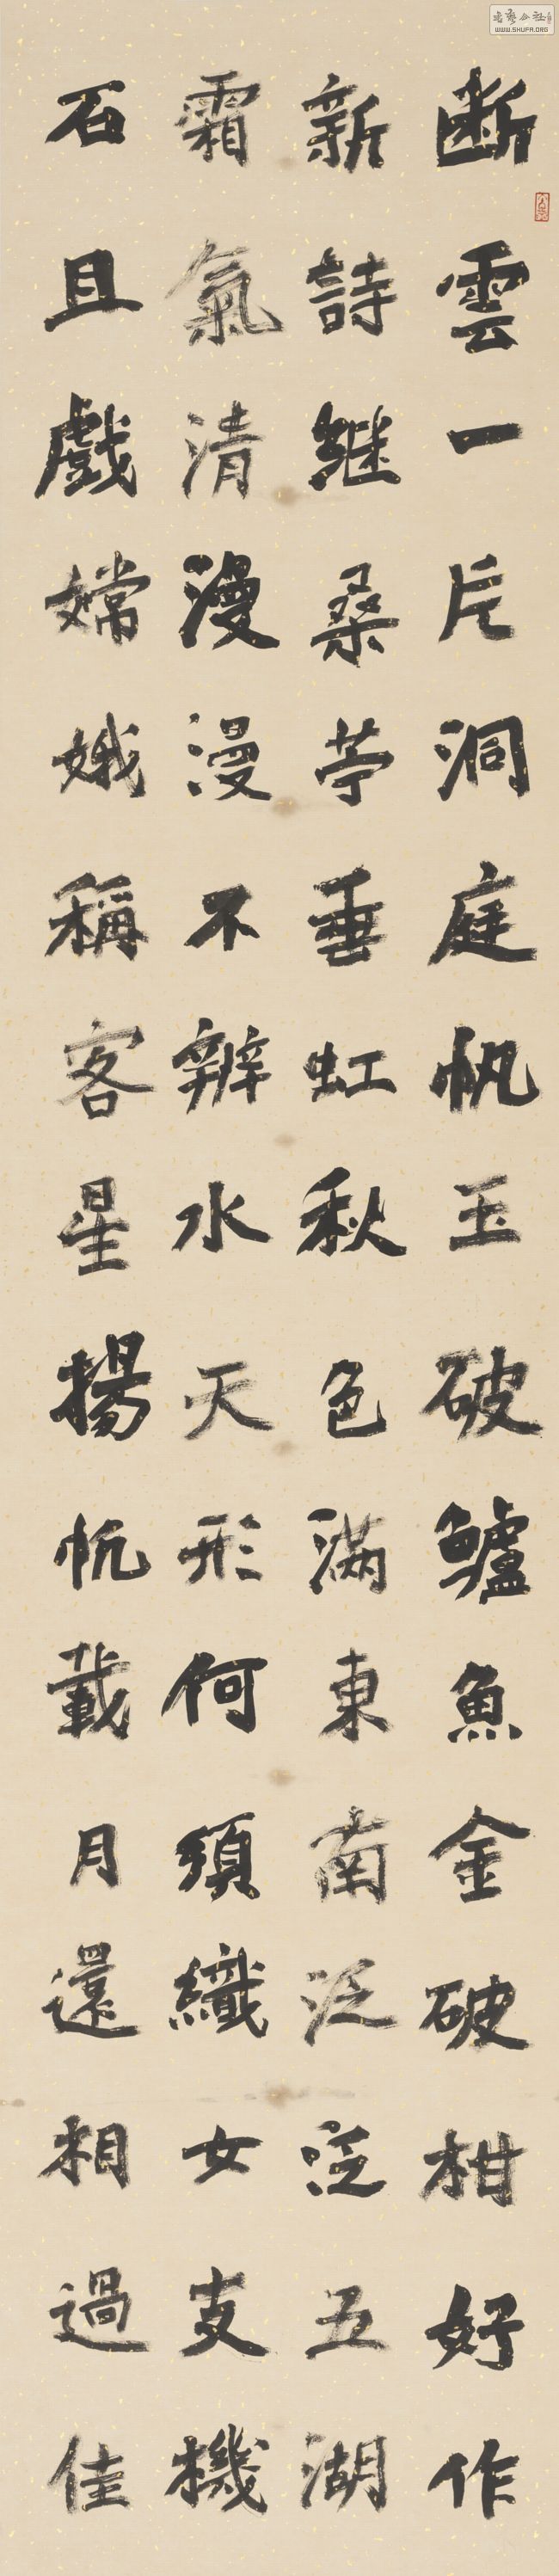 断雲一片洞庭帆玉破鱸魚金破柑好作
新詩継桑苧垂虹秋色滿東南泛泛五湖
霜氣清漫漫不辨水天形何須織女支機
石且戲嫦娥稱客星揚帆載月還相過佳
WWW.SHUFA.ORG